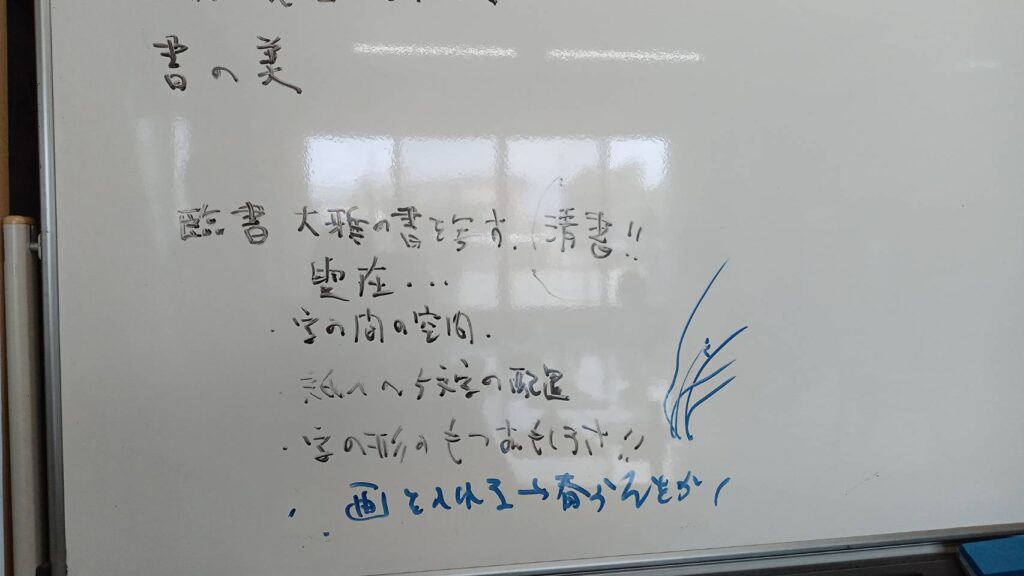 書の美
臨書 大雅の書を写す. (清書!!
聖在...
・字の間の空間.
紙へ 文字の配置
・字の形のもつおもしろさ!!
・画を入れる→